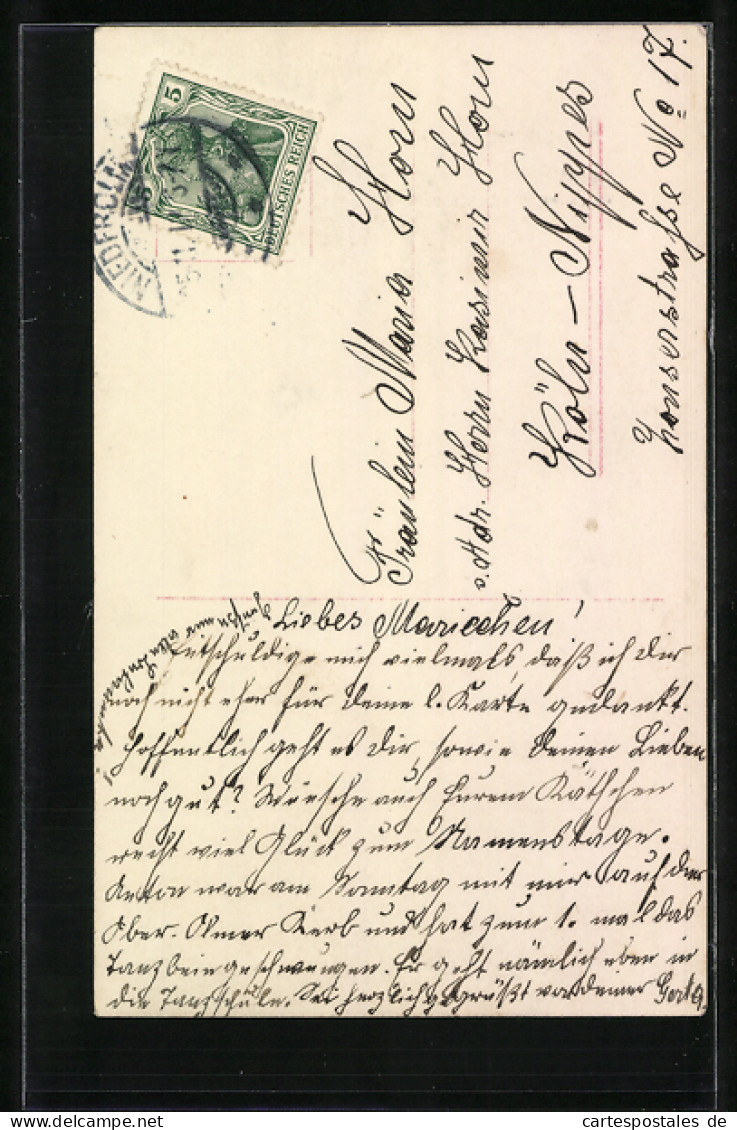 5
DEUTSCHES REICH
Fräulein Maria Horn
p. Adr. Herrn Kasimir Horn
Köln – Nippes
Zonserstrasse No 17.
Liebes Mariechen!
Entschuldige mich vielmals, daß ich dir
noch nicht eher für deine l. Karte gedankt.
Hoffentlich geht es dir, sowie deinen Lieben
noch gut? Wünsche auch Eurem Käthchen
recht viel Glück zum Namenstage.
Anton war am Sonntag mit mir auf der
Ober-Olmer Kerb und hat zum 1. mal das
Tanzbein geschwungen. Er geht nämlich eben in
die Tanzschule. Sei herzlich gegrüßt von deiner
cartespostales de